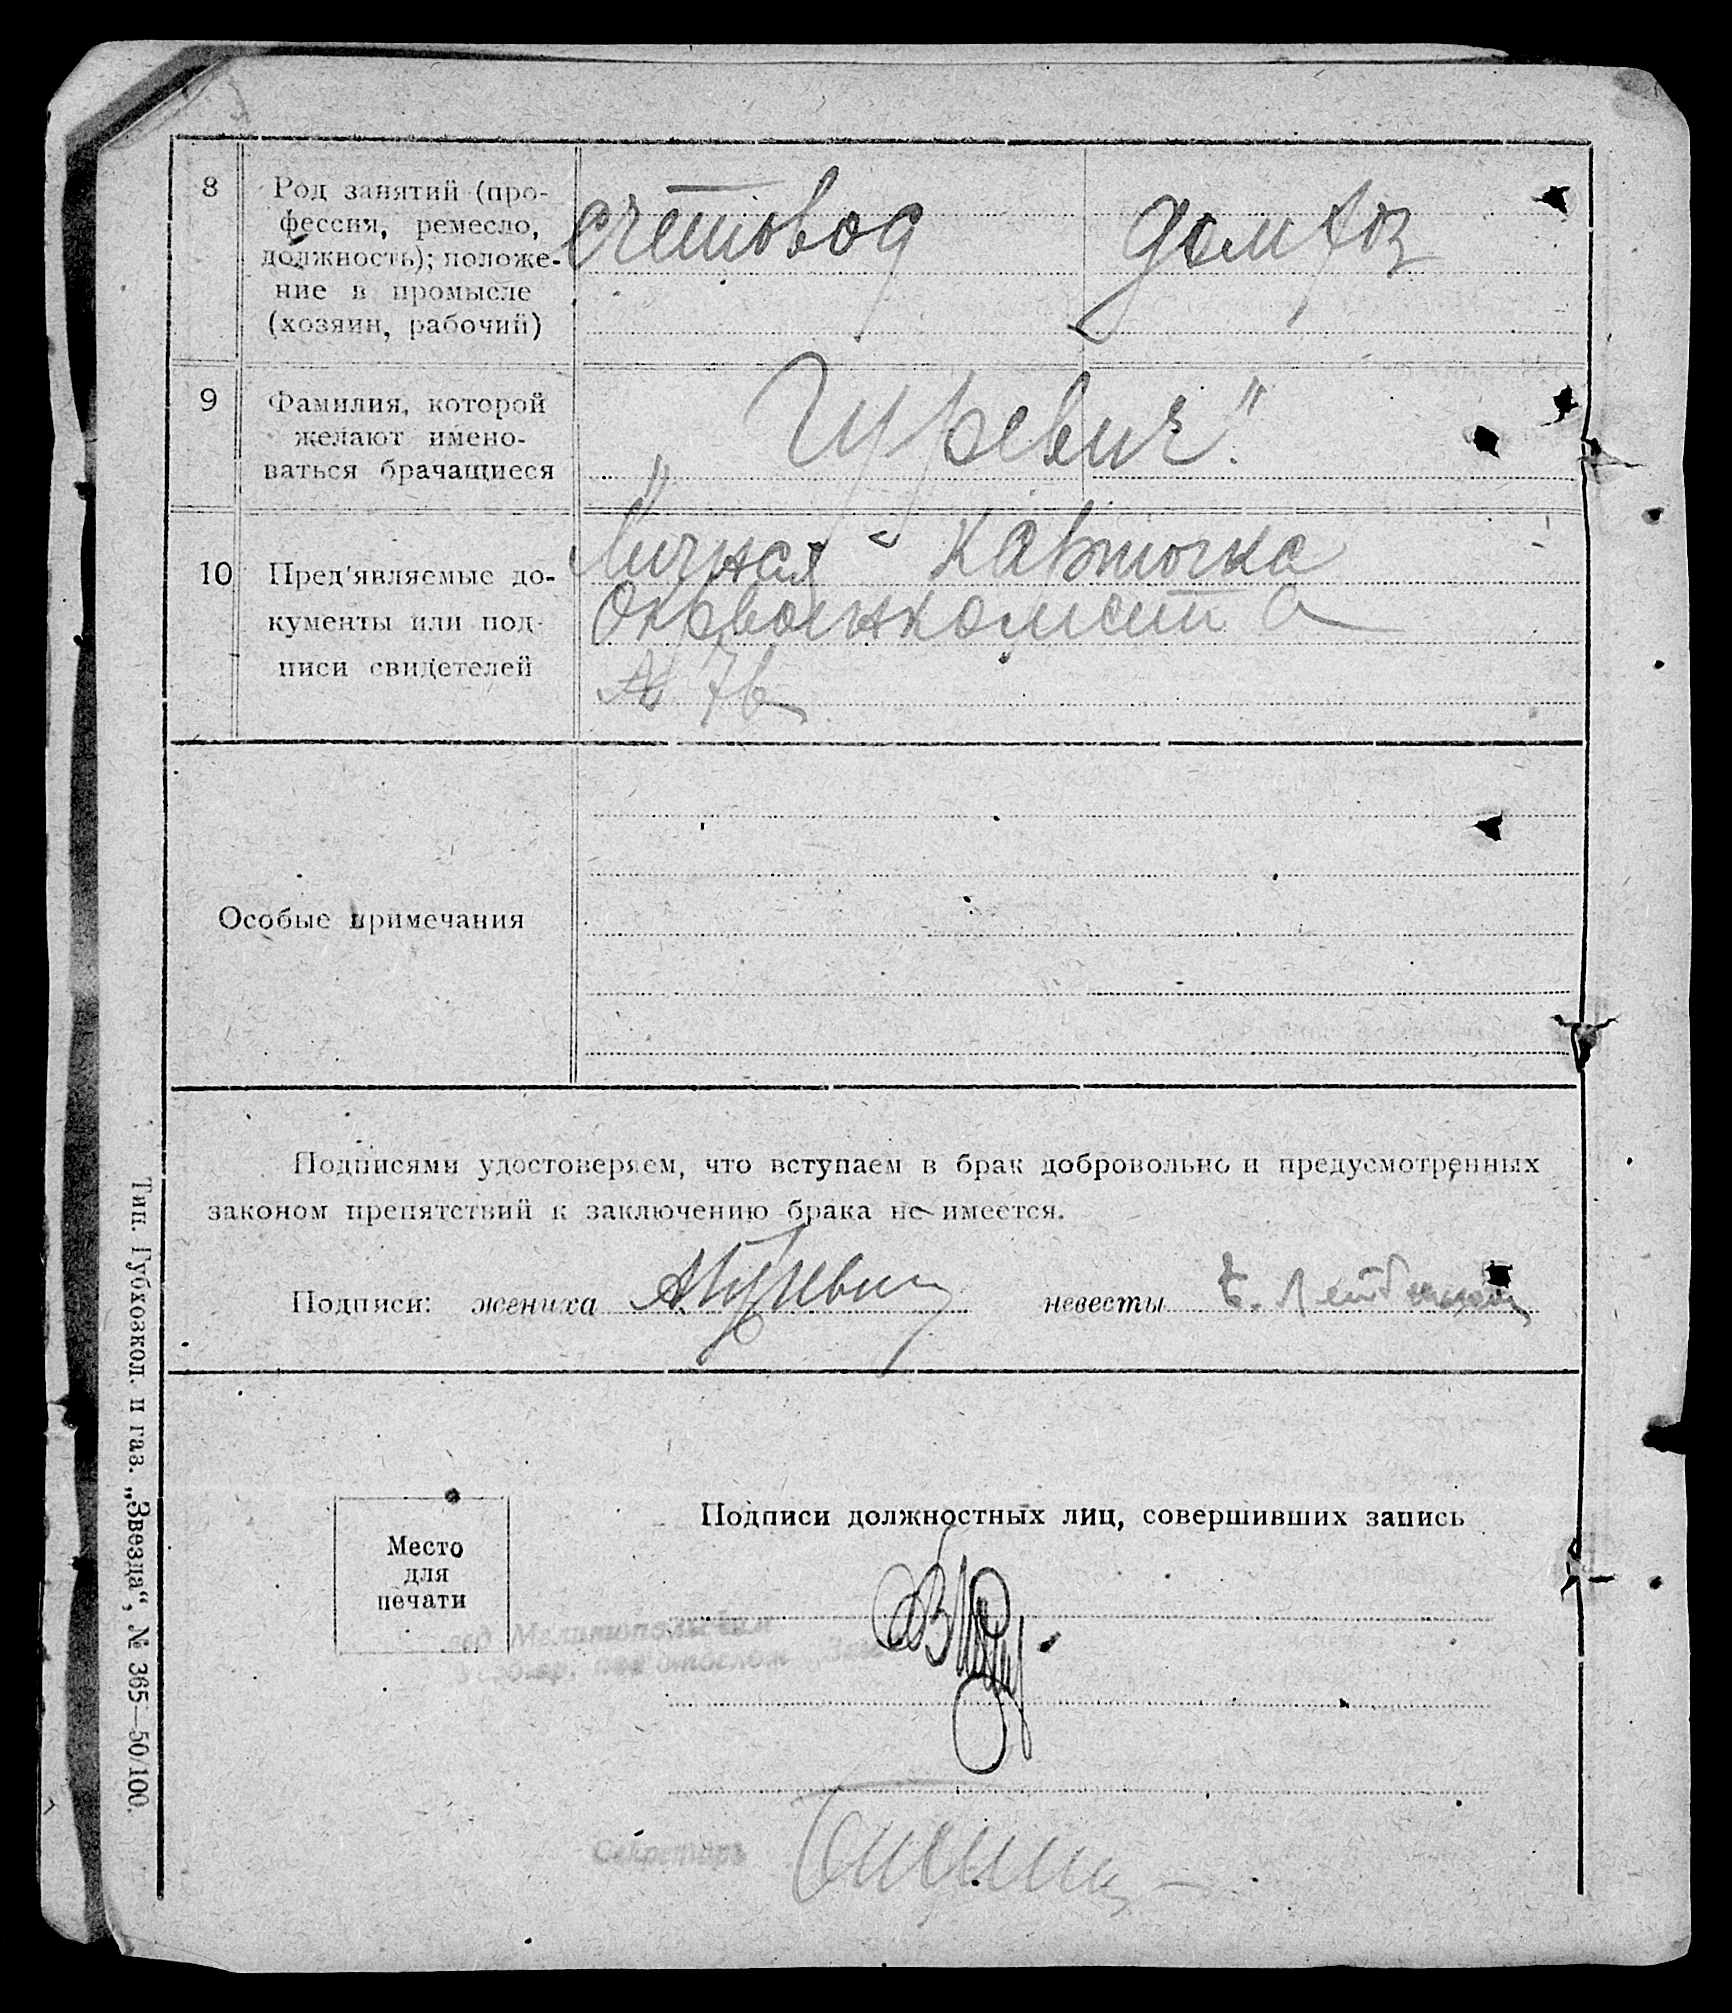 8
Род занятий (про-
фессия, ремесло,
должность); положе-
ние в промысле
(хозяин, рабочий)
счетовод
домхоз
9
Фамилия, которой
желают имено-
ваться брачащиеся
„Гуревич“.
10
Пред'являемые до-
кументы или под-
писи свидетелей
Личная карточка
Окрвоенкомата
№ 76
Особые примечания
Подписями удостоверяем, что вступаем в брак добровольно и предусмотренных
законом препятствий к заключению брака не имеется.
Подписи: жениха АГуревич невесты
Место
для
печати
Подписи должностных лиц, совершивших запись
Зав
Секретарь
Тип. Губхозкол. и газ. „Звезда“, № 365—50/100.